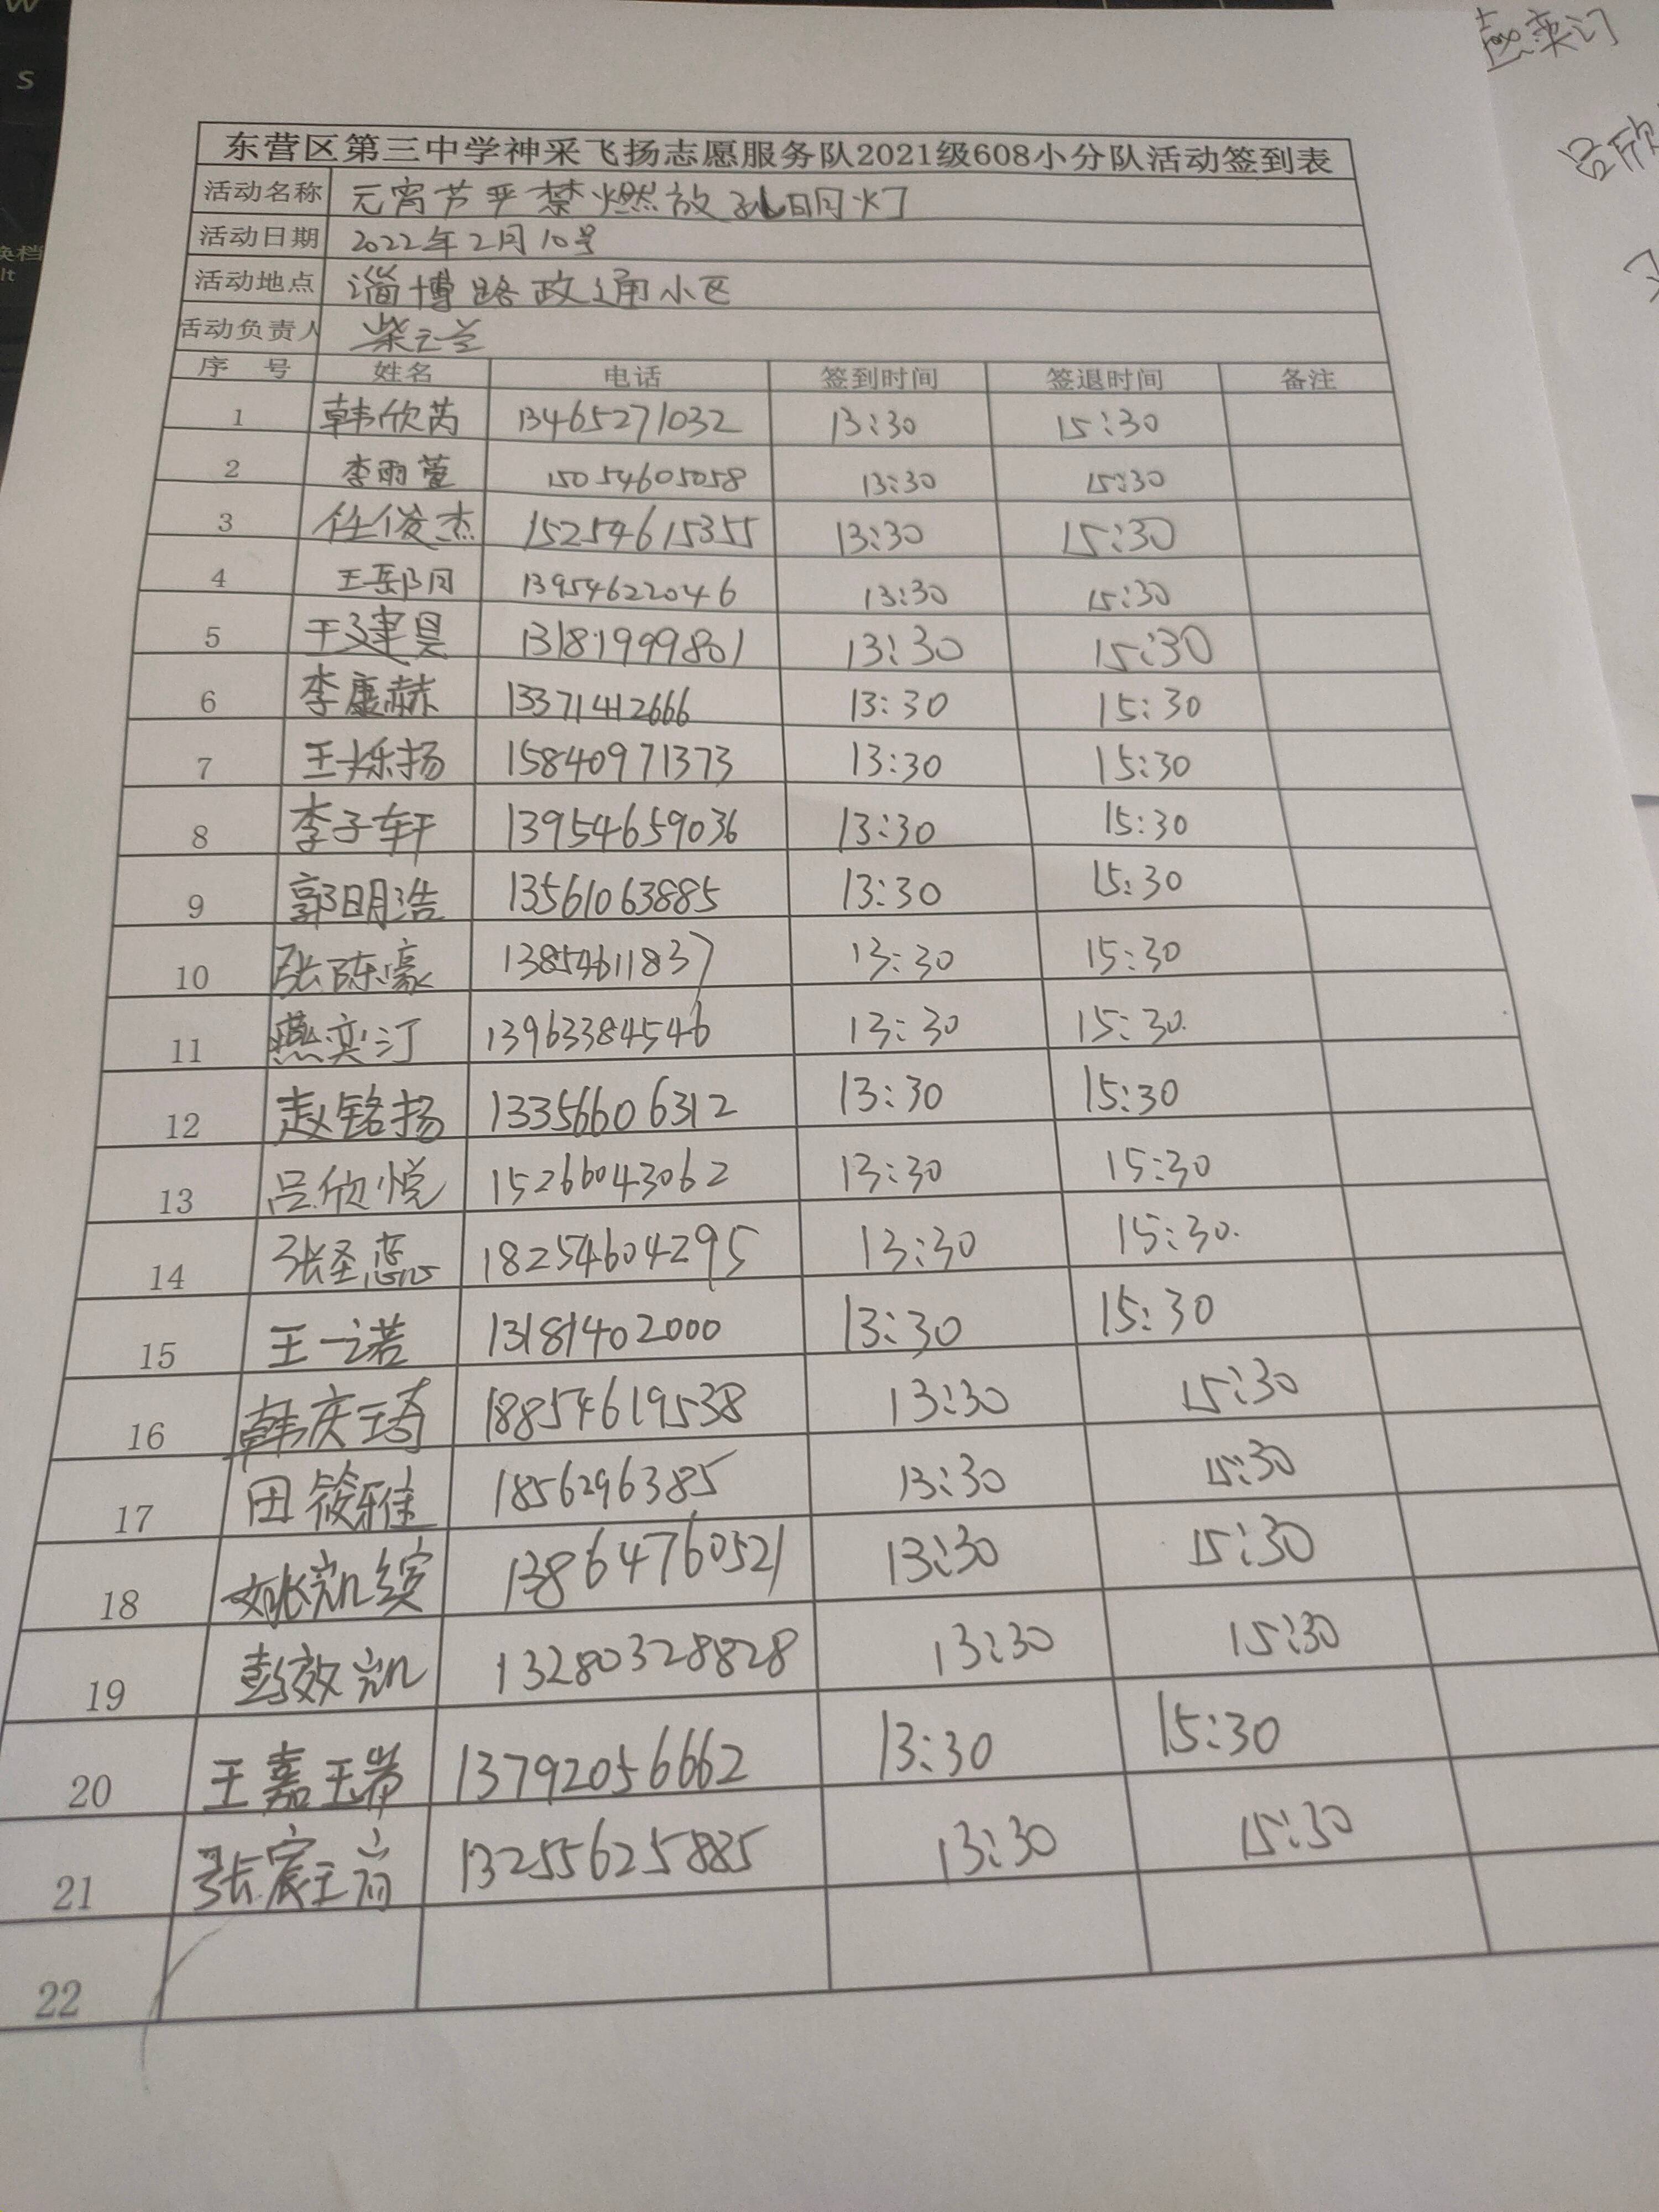 东营区第三中学神采飞扬志愿服务队2021级608小分队活动签到表
活动名称 元宵节严禁燃放孔明灯
活动日期 2022年2月10号
活动地点 淄博路政通小区
活动负责人 柴云兰
序号 姓名 电话 签到时间 签退时间 备注
1 韩欣芮 13465271032 13:30 15:30
2 李雨萱 15054605058 13:30 15:30
3 任俊杰 15254615355 13:30 15:30
4 王郡阳 13954622046 13:30 15:30
5 王建昊 13181999801 13:30 15:30
6 李康赫 13371412666 13:30 15:30
7 王烁扬 15840971373 13:30 15:30
8 李子轩 13954659036 13:30 15:30
9 郭明浩 13561063885 13:30 15:30
10 张陈豪 13854611837 13:30 15:30
11 燕奕汀 13963384546 13:30 15:30
12 赵铭扬 13356606312 13:30 15:30
13 吕欣悦 15266043062 13:30 15:30
14 张圣恋 18254604295 13:30 15:30
15 王一诺 13181402000 13:30 15:30
16 韩庆琦 18854619538 13:30 15:30
17 田筱雅 1856296385 13:30 15:30
18 姚凯缤 13864760521 13:30 15:30
19 彭效凯 13280328828 13:30 15:30
20 王嘉瑞 13792056662 13:30 15:30
21 张宸 13255625885 13:30 15:30
22
燕奕汀
吕欣